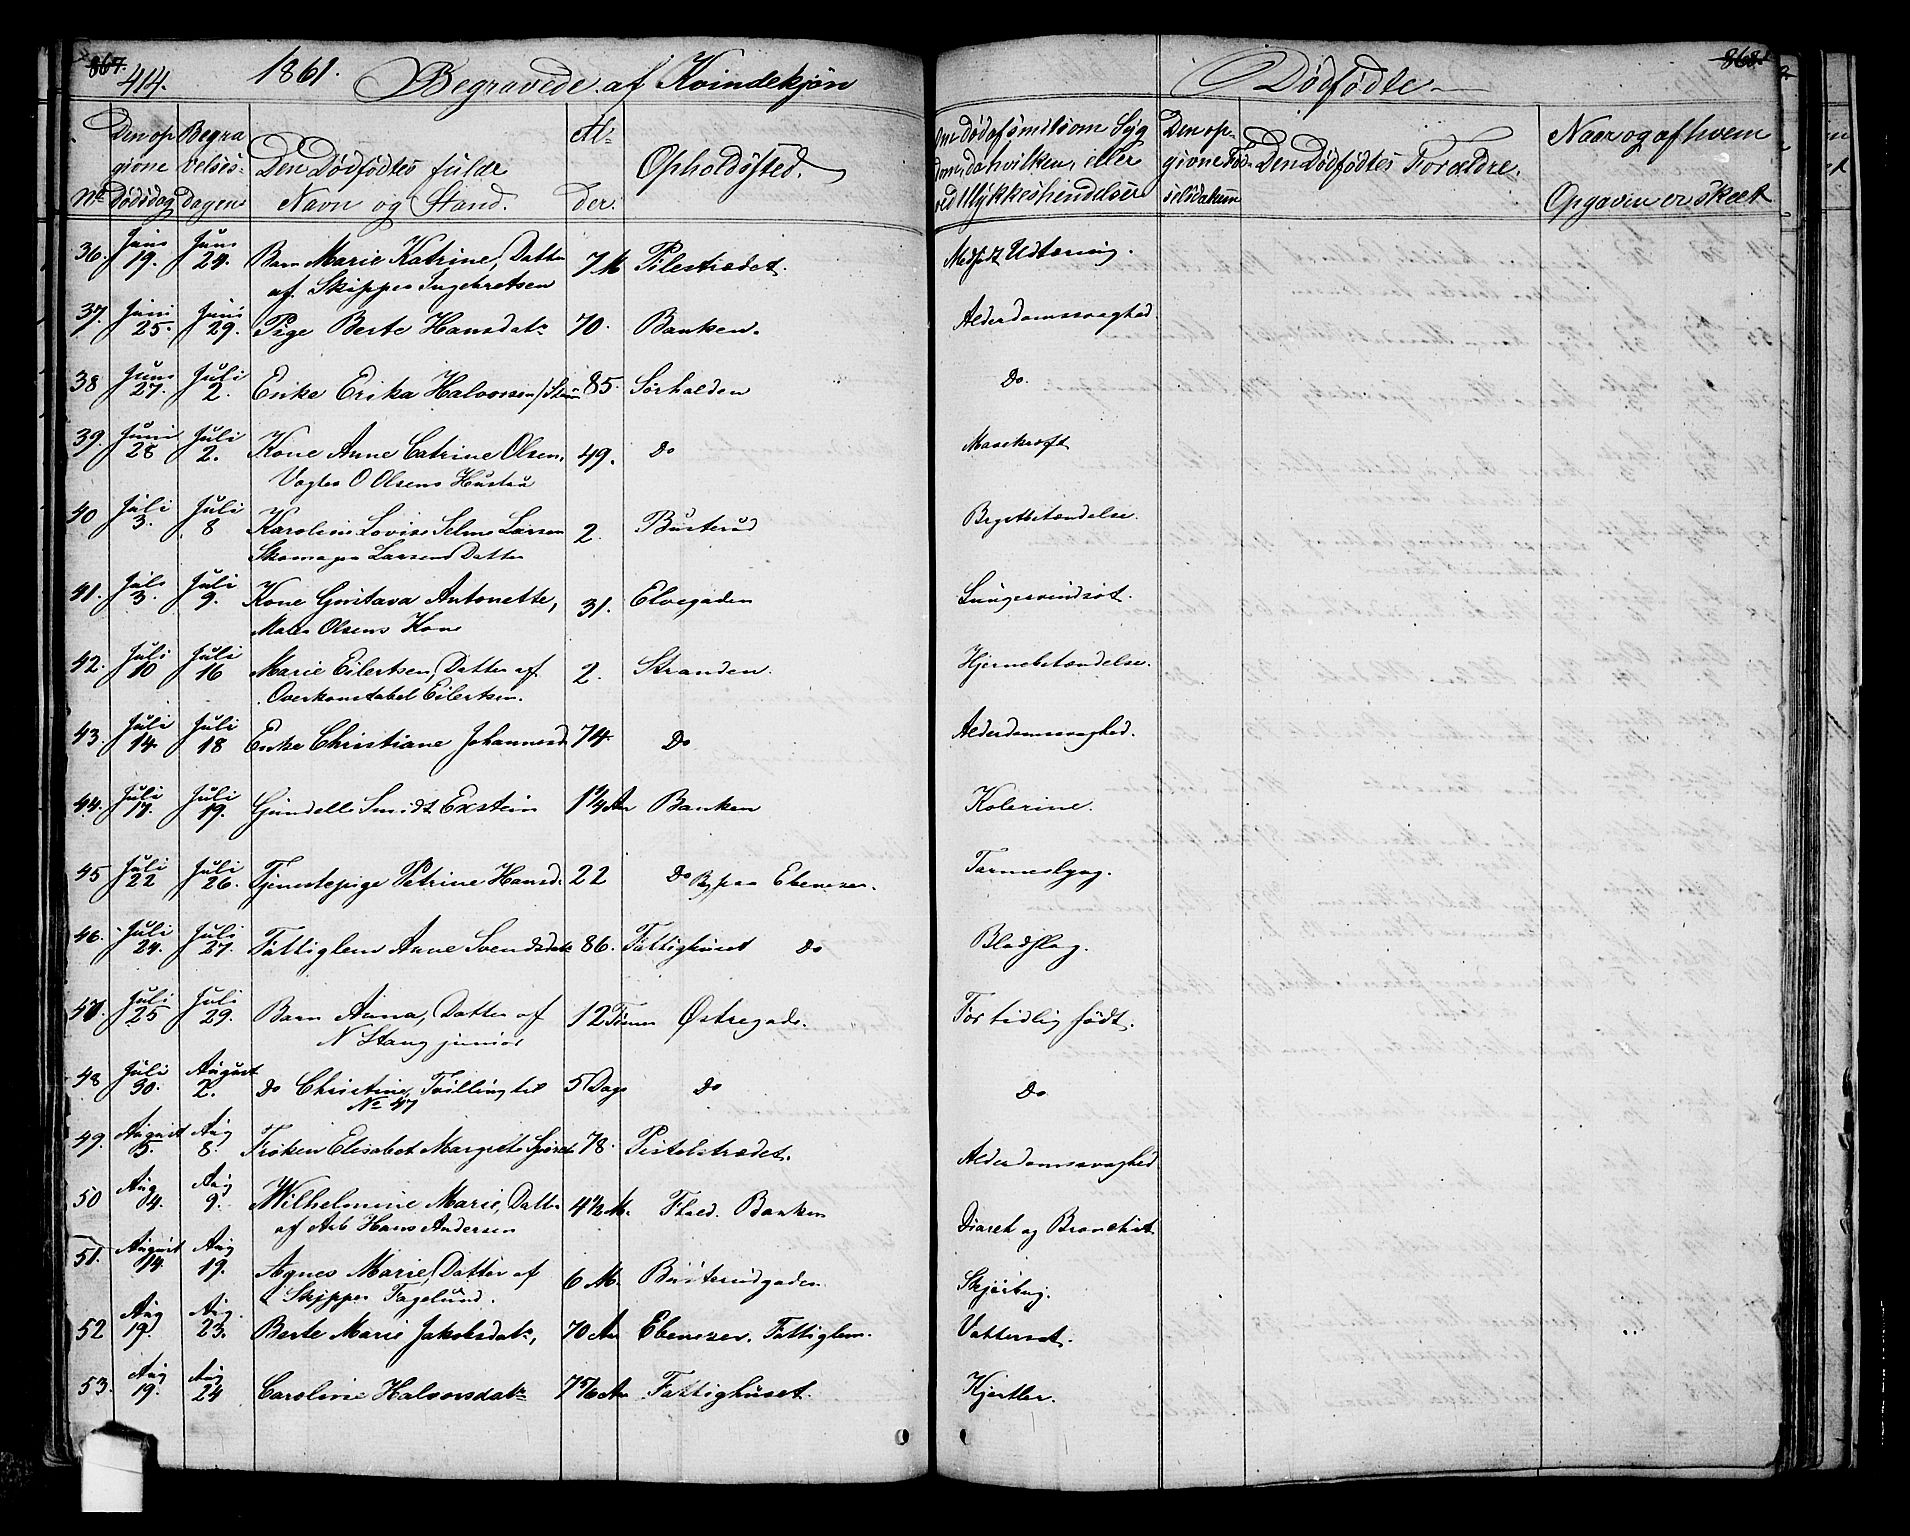 867.
414. 1861. Begravede af Kvindekjøn
Dødfødte
868.
No
Den opgivne Dødsdag
Begravelses-Dagen
Den Dødfødtes fulde Navn og Stand.
Alder.
Opholdssted.
Den opgivne Fødselsdatum
Den Dødfødtes Forældre.
Naar og af hvem Opgaven er skeet
36. Juni 19. Juni 24. Barn Marie Katrine, Datter 7 M Pilestrædet. Medfødt Udtæring.
af Skipper Ingebretsen
37. Juni 25. Juni 29. Pige Berte Hansdatr 70. Banken. Alderdomssvaghed
38 Juni 27. Juli 2. Enke Erika Halvorsen 85. Sørhalden Do.
39. Juni 28 Juli 2. Kone Anne Catrine Olsen, 49. Do Mavekræft
Vogter O Olsens Hustru
40 Juli 3. Juli 8 Karoline Lovise Selma Larsen 2. Busterud Brystbetændelse.
Skomager Larsens Datter
41. Juli 3. Juli 9. Kone Gustava Antonette, 31. Elvegaden Lungesvindsot.
Maler Olsens Kone
42. Juli 10 Juli 16 Marie Eilertsen, Datter af 2. Stranden. Hjernebetændelse.
Overkonstabel Eilertsen.
43. Juli 14 Juli 18 Enke Christiane Johannesd. 74. Do Alderdomssvaghed.
44. Juli 17. Juli 19. Gundelle Smidt Exstein 1 1/4 Aar Banken Kolerine.
45 Juli 22 Juli 26. Tjenestepige Petrine Hansd. 22 Do Ebeneser. Tarmeslyng.
46. Juli 24. Juli 27. Fattiglem Anne Svendsdatr 86. Fattighuset Do Blodslag.
47. Juli 25 Juli 29. Barn Anna, Datter af 12 Timer Østregade. For tidlig født.
N Stang junior
48 Juli 30. August 2. Do Christine, Tvilling til 5 Dage Do Do
No 47
49. August 5. Aug 8. Frøken Elisabet Margrete 78. Pistolstrædet. Alderdomssvaghed
50 Aug 4. Aug 9. Wilhelmine Marie, Datter 4 1/2 M. Banken Diaret og Bronchit
af Arb Hans Andersen
51. August 14. Aug 19. Agnes Marie, Datter af 6 M. Busterudgaden
Skipper Fagelund.
52 Aug 19. Aug. 23. Berte Marie Jakobsdatr, 70 Aar Ebeneser, Fattiglem. Vattersot.
53. Aug 19. Aug 24 Caroline Halvorsdatr 7 5/6 Aar Fattighuset. Kjertler.